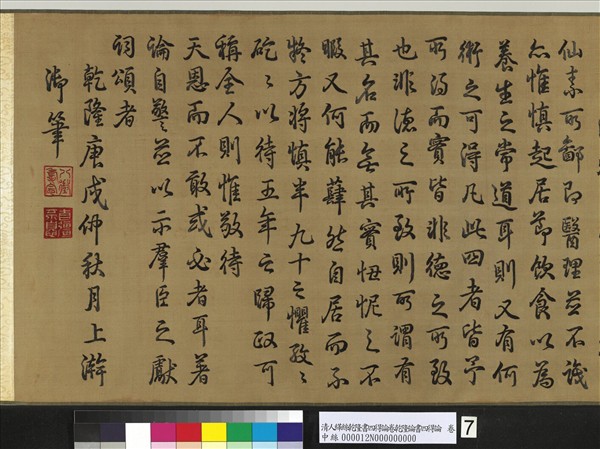 仙素所鄙即醫理並不識
亦惟慎起居節飲食以為
養生之常道耳則又有何
術之可得凡此四者皆予
所得而實皆非德之所致
也非德之所致則所謂有
其名而無其實忸怩之不
暇又何能肆然自居而不
兢方將慎半九十之懼孜〻
矻〻以待五年之歸政可
稱全人則惟敬待
天恩而不敢或必者耳著
論自警並以示羣臣之獻
詞頌者
乾隆庚戌仲秋月上澣
御筆
7
中絲000012N000000000